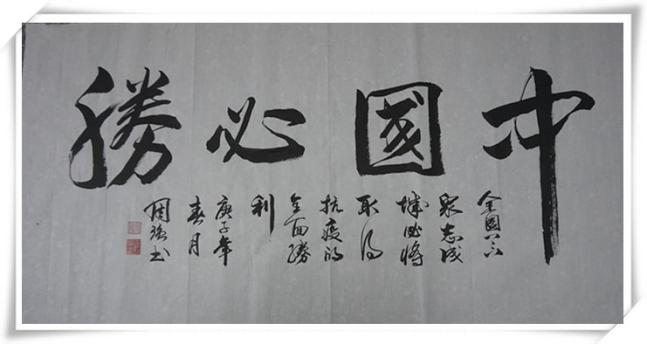 中國必勝
全國
衆志成
城必将
取得
抗疫的
全面勝
利
庚子年
春月
周强书